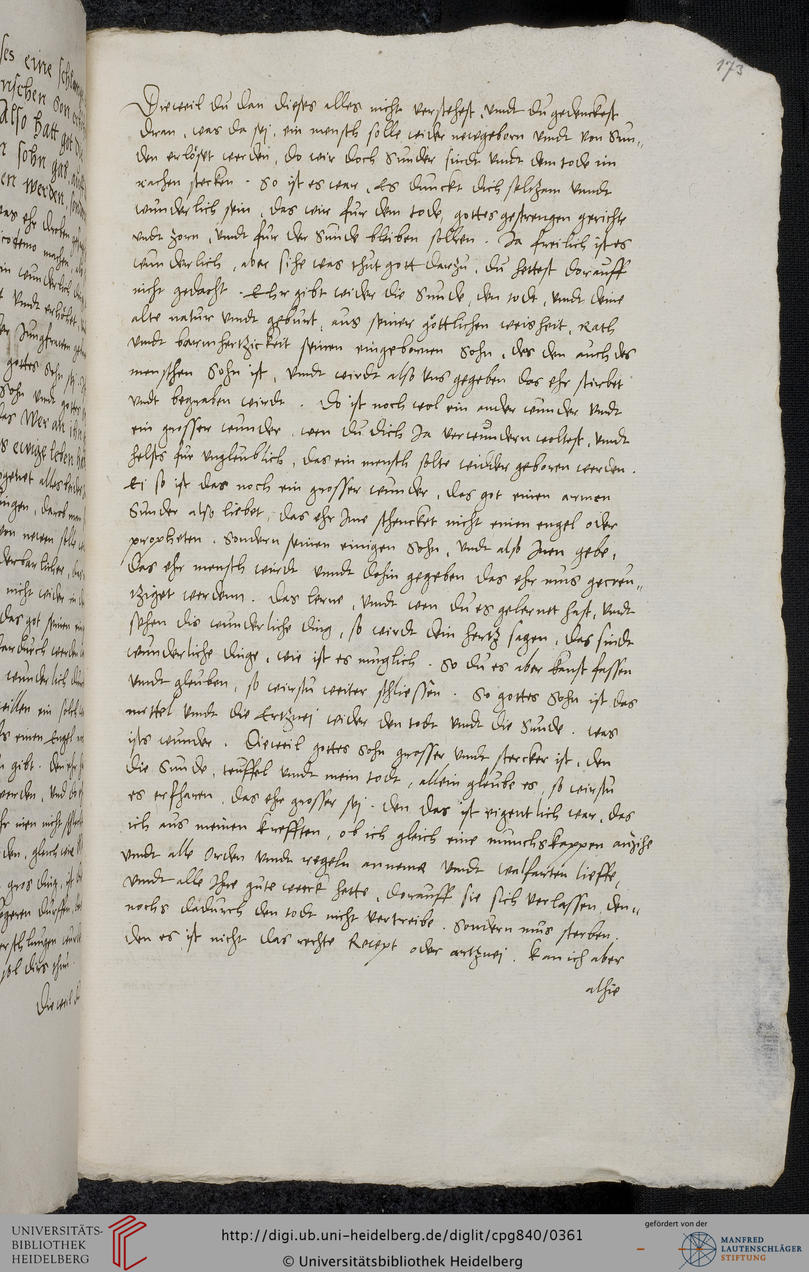 173
Dieweil du dan dieses alles nicht verstehest, undt du gedenckest
dran, was da sej, ein mensch solle wider newgeborn undt von Sun„
den erlöset werden, do wir doch Sunder sindt undt dem tode im
rachen stecken. So ist es war, Es dunckt dich seltzam undt
wunderlich sein, das wir fur dem tode, gottes gestrengen gerichte
undt zorn, undt fur der Sunde bleiben sollen. Ja freilich ist es
wunderlich, aber sihe was thut gott darzu, du hettest dorauff
nicht gedacht. Ehr gibt wider die Sunde, den todt, undt deine
alte natur undt geburt, aus seiner göttlichen weisheit, Rath
undt barmhertzickeit seinen eingebornen Sohn, des den auch des
menschen Sohn ist, undt wirdt also uns gegeben das ehr stirbet
undt begraben wirdt. Do ist noch wol ein ander wunder undt
ein grosser wunder, wen du dich Ja verwundern woltest, undt
helfts fur ungleublich, das ein mensch solte widder geboren werden.
Ei so ist das noch ein grosser wunder, das got einen armen
Sunder also liebet, das ehr Ime schencket nicht einen engel oder
propheten. Sondern seinen einigen Sohn, undt also Inen gebe,
das ehr mensch wurdt unndt dohin gegeben das ehr mus gecreu„
tziget werdenn. Das lerne, undt wen du es gelernet hast, undt
sehen dis wunderliche ding, so wirdt dein hertz sagen, das sindt
wunderliche dinge, wie ist es muglich. So du es aber kanst fassen
undt gleuben, so wirstu weiter schliessen. So gottes Sohn ist das
mittel undt die Ertznej wider den todt undt die Sunde. was
ists wunder. Dieweil gottes Sohn grosser undt stercker ist, den
die Sunde, teuffel undt mein todt, allein gleube es, so wirstu
es erfharen, das ehr grosser sej. den das ist eigentlich war, das
ich aus meinen krefften, ob ich gleich eine munchskappen anzihe
undt alle Orden undt regeln anneme undt walfarten lieffe,
undt alle Ihre gute werck hette, dorauff sie sich verlassen, den„
nochs dadurch den todt nicht vertreibe. Sondern mus sterben.
den es ist nicht das rechte Recept oder artznej. kan ich aber
alhie
UNIVERSITÄTS-
BIBLIOTHEK
HEIDELBERG
http://digi.ub.uni-heidelberg.de/diglit/cpg840/0361
© Universitätsbibliothek Heidelberg
gefördert von der
MANFRED
LAUTENSCHLÄGER
STIFTUNG